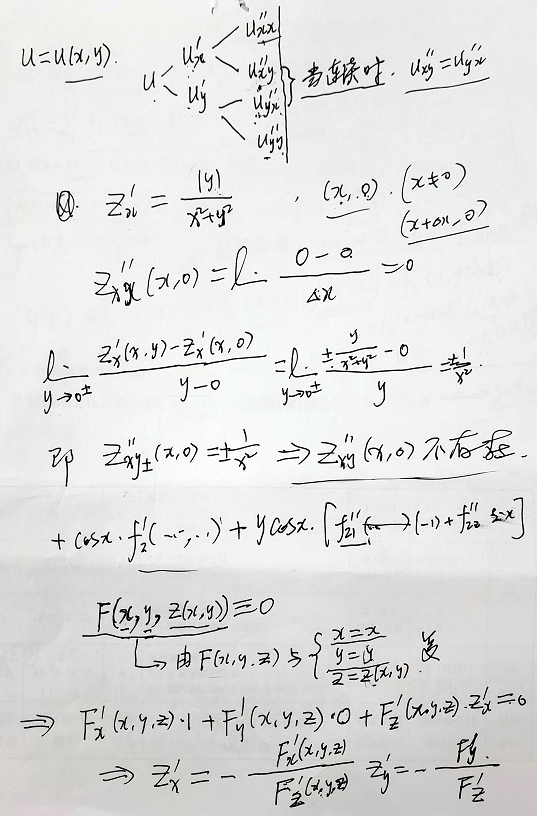 u=u(x,y). u u'x u'y u''xx u''xy u''yx u''yy } 当连续时. u''xy=u''yx
z'x = |y| / (x²+y²) , (x,0). (x≠0)
(x+Δx,0)
z''xx(x,0) = l. (0-0)/Δx = 0
l. y→0± (z'x(x,y)-z'x(x,0))/(y-0) = l. y→0± (± y/(x²+y²) - 0)/y = ± 1/x².
即 z''xy±(x,0) = ± 1/x² ⇒ z''xy(x,0) 不存在.
+ cosx·f'2(…,…) + ycosx·[f''21(-1) + f''22 sinx]
F(x,y,z(x,y))≡0
→ 由F(x,y,z)与{ x=x y=y z=z(x,y) 复
⇒ F'x(x,y,z)·1+F'y(x,y,z)·0+F'z(x,y,z)·z'x=0
⇒ z'x = - F'x(x,y,z)/F'z(x,y,z) z'y = - F'y/F'z